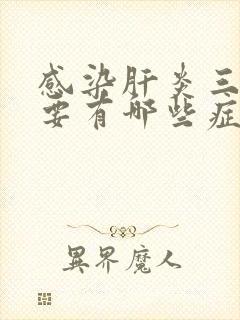 感染肝炎三
要有哪些症
異界魔人